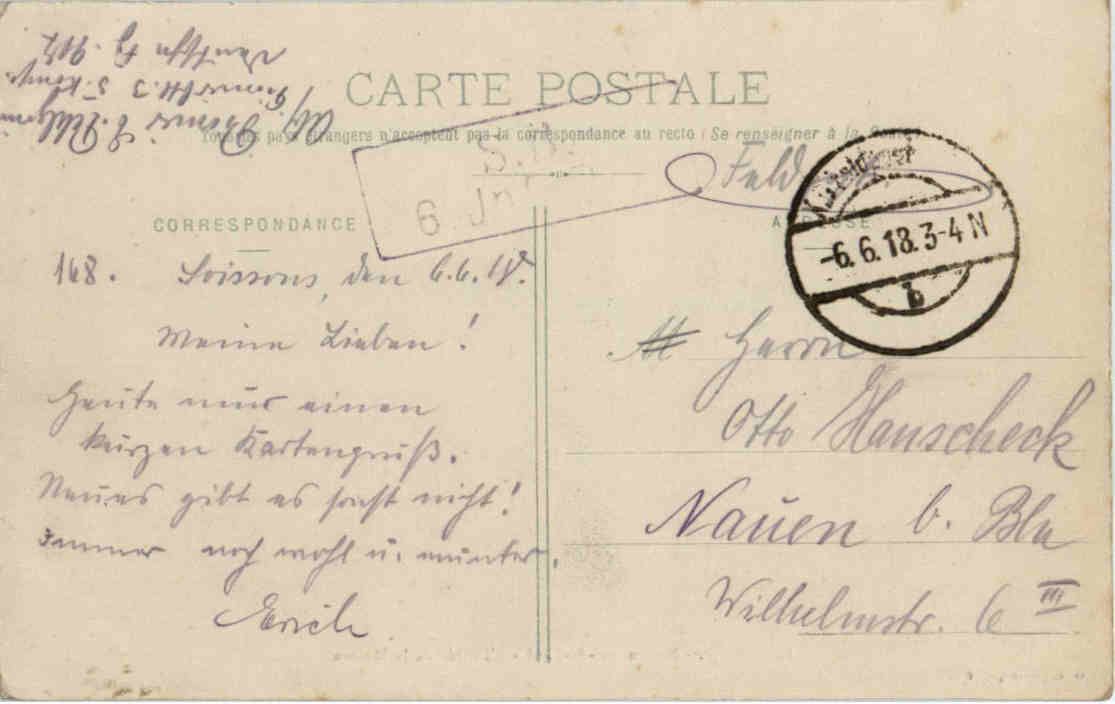 CARTE POSTALE
Tous les pays étrangers n'acceptent pas la correspondance au recto (Se renseigner à la Poste)
S.B.
6. Jun
Feld
-6.6.18.3-4 N
b
CORRESPONDANCE
ADRESSE
168. Soissons, den 6.6.18.
Meine Lieben!
Heute nur einen
kurzen Kartengruß.
Neues gibt es sonst nicht!
Immer noch wohl u. munter.
Erich
Herrn
Otto Hanscheck
Nauen b. Bln
Wilhelmstr. 6 III